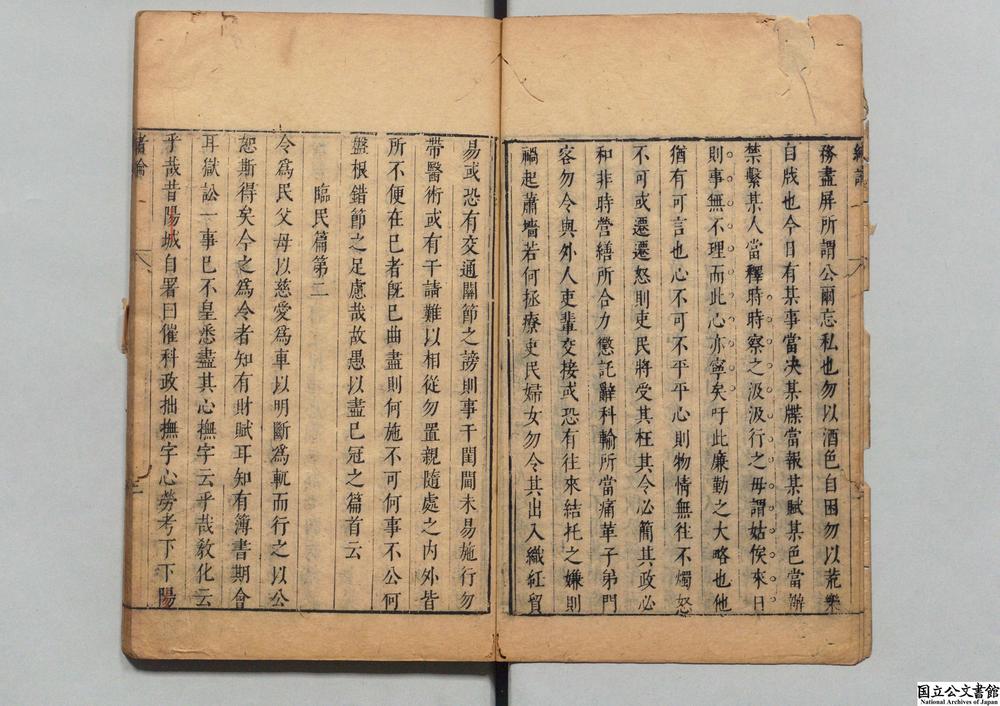 緒論
務盡屏所謂公爾忘私也勿以酒色自困勿以荒樂
自戕也今日有某事當决某牒當報某賦某色當辦
禁繫某人當釋時時察之汲汲行之毋謂姑俟來日
則事無不理而此心亦寧矣吁此廉勤之大略也他
猶有可言也心不可不平平心則物情無徃不燭怒
不可或遷遷怒則吏民將受其枉其令必簡其政必
和非時營繕所合力懲託辭科輸所當痛革子弟門
容勿令與外人吏輩交接或恐有往來結托之嫌則
禍起蕭墻若何拯療吏民婦女勿令其出入織紅貿
易或恐有交通關節之謗則事干閨閫未易施行勿
帶醫術或有干請難以相從勿置親隨處之内外皆
所不便在巳者旣巳曲盡則何施不可何事不公何
盤根錯節之足慮哉故愚以盡巳冠之篇首云
臨民篇第二
令爲民父母以慈愛爲車以明斷爲軏而行之以公
恕斯得矣今之爲令者知有財賦耳知有簿書期會
耳獄訟一事巳不皇悉盡其心撫字云乎哉敎化云
乎哉昔陽城自署曰催科政拙撫字心勞考下下陽
緒論
国立公文書館
National Archives of Japan